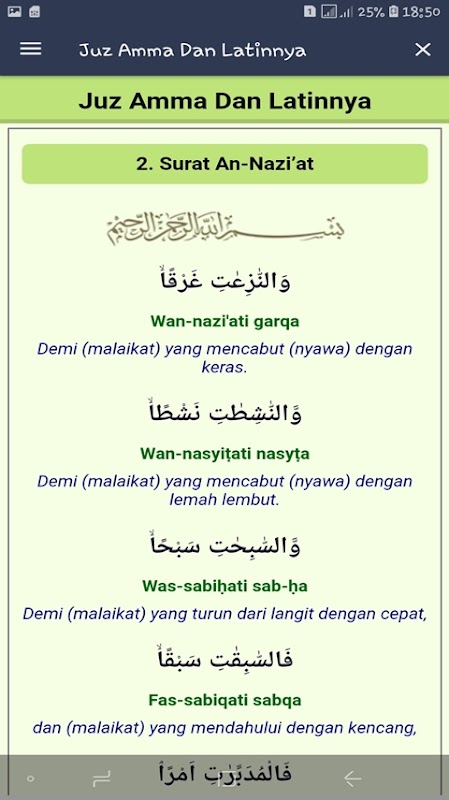 1 25% 18:50
Juz Amma Dan Latinnya ×
Juz Amma Dan Latinnya
2. Surat An-Nazi’at
بسم الله الرحمن الرحيم
وَالنّٰزِعٰتِ غَرْقًاۙ
Wan-nazi'ati garqa
Demi (malaikat) yang mencabut (nyawa) dengan
keras.
وَّالنّٰشِطٰتِ نَشْطًاۙ
Wan-nasyiṭati nasyṭa
Demi (malaikat) yang mencabut (nyawa) dengan
lemah lembut.
وَّالسّٰبِحٰتِ سَبْحًاۙ
Was-sabiḥati sab-ḥa
Demi (malaikat) yang turun dari langit dengan cepat,
فَالسّٰبِقٰتِ سَبْقًاۙ
Fas-sabiqati sabqa
dan (malaikat) yang mendahului dengan kencang,
فَالْمُدَبِّرٰتِ اَمْرًاۘ